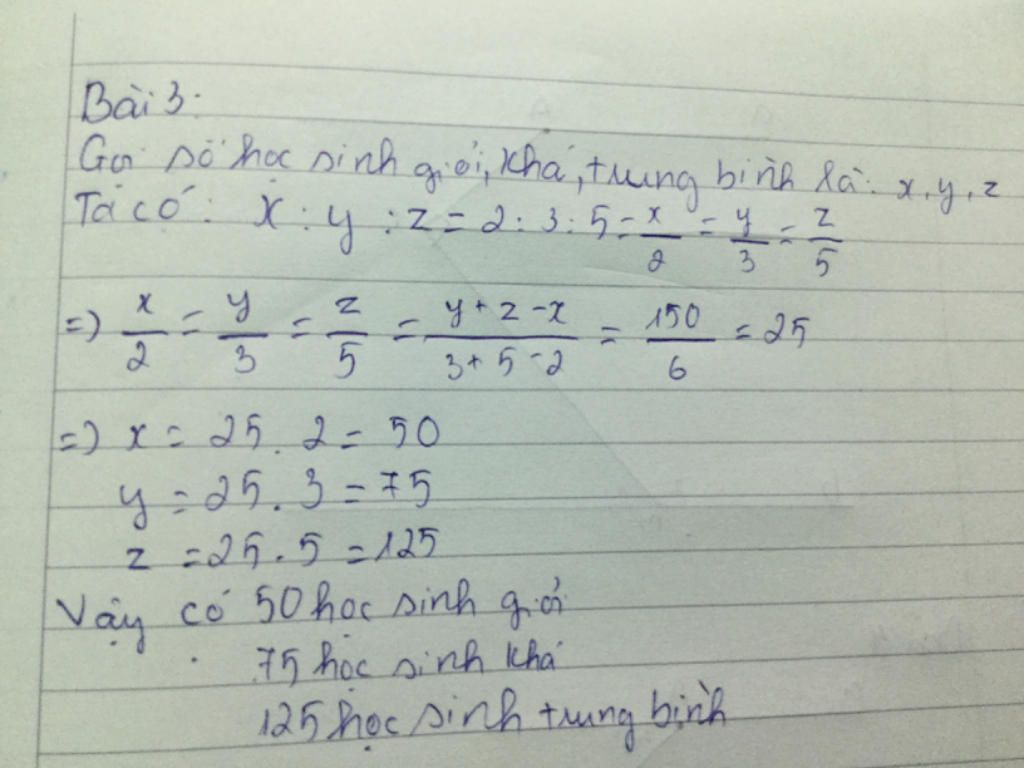 Bài 3:
Gọi số học sinh giỏi, khá, trung bình là: x, y, z
Ta có: x : y : z = 2 : 3 : 5 = x/2 = y/3 = z/5
=) x/2 = y/3 = z/5 = (y + z - x)/(3 + 5 - 2) = 150/6 = 25
=) x = 25 . 2 = 50
y = 25 . 3 = 75
z = 25 . 5 = 125
Vậy có 50 học sinh giỏi
75 học sinh khá
125 học sinh trung bình